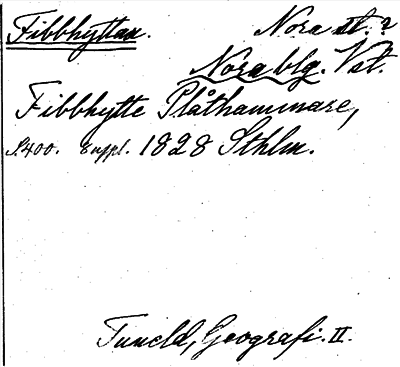 Fibbhyttan. Nora st.?
Nora blg. Vst.
Fibbhytte Plåthammare,
S.400. Suppl. 1828 Sthlm.
Tuneld, Geografi. II.